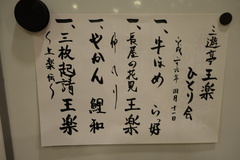 三遊亭王楽
ひとり会
平成二十六年四月十二日
一、牛ほめ　らっ好
一、長屋の花見　王楽
仲入り
一、やかん　鯉和
一、三枚起請　王楽